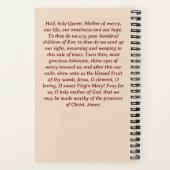 Hail, holy Queen, Mother of mercy,
our life, our sweetness and our hope.
To thee do we cry, poor banished
children of Eve: to thee do we send up
our sighs, mourning and weeping in
this vale of tears. Turn then, most
gracious Advocate, thine eyes of
mercy toward us, and after this our
exile, show unto us the blessed Fruit
of thy womb, Jesus, O clement, O
loving, O sweet Virgin Mary! Pray for
us, O holy mother of God, that we
may be made worthy of the promises
of Christ. Amen.